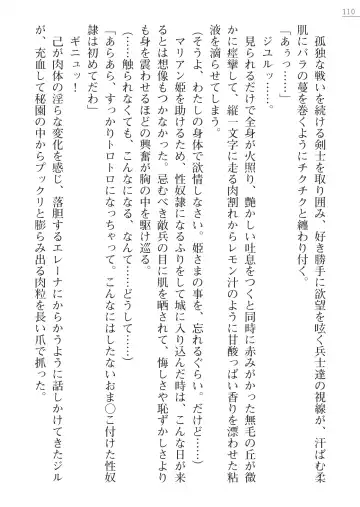 110
　孤独な戦いを続ける剣士を取り囲み、好き勝手に欲望を呟く兵士達の視線が、汗ばむ柔
肌にバラの蔓を巻くようにチクチクと纏わり付く。
「あぅっ……」
　ジユルッ……。
　見られるだけで全身が火照り、艶かしい吐息をつくと同時に赤みがかった無毛の丘が微
かに痙攣して、縦一文字に走る肉割れからレモン汁のように甘酸っぱい香りを漂わせた粘
液を滴らせてしまう。
（そうよ、わたしの身体で欲情しなさい。姫さまの事を、忘れるぐらい。だけど……）
　マリアン姫を助けるため、性奴隷になるふりをして城に入り込んだ時は、こんな日が来
るとは想像もつかなかった。忌むべき敵兵の目に肌を晒されて、悔しさや恥ずかしさより
も身を震わせるほどの興奮が胸の中を駆け巡る。
（……触られなくても、こんなになる、なんて……どうして……）
「あらあら、すっかりトロトロになっちゃって。こんなにはしたないおま◯こ付けた性奴
隷は初めてだわ」
　ギニュッ！
　己が肉体の淫らな変化を感じ、落胆するエレーナにからかうように話しかけてきたジル
が、充血して秘園の中からプックリと膨らみ出る肉粒を長い爪で抓った。